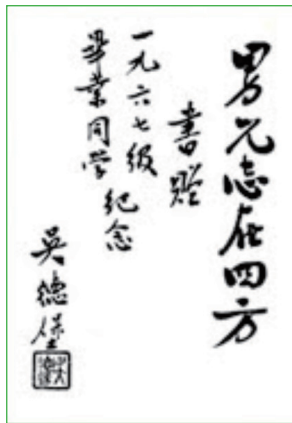 男儿志在四方
書贈
一九六七級
畢業同学
紀念
吴德